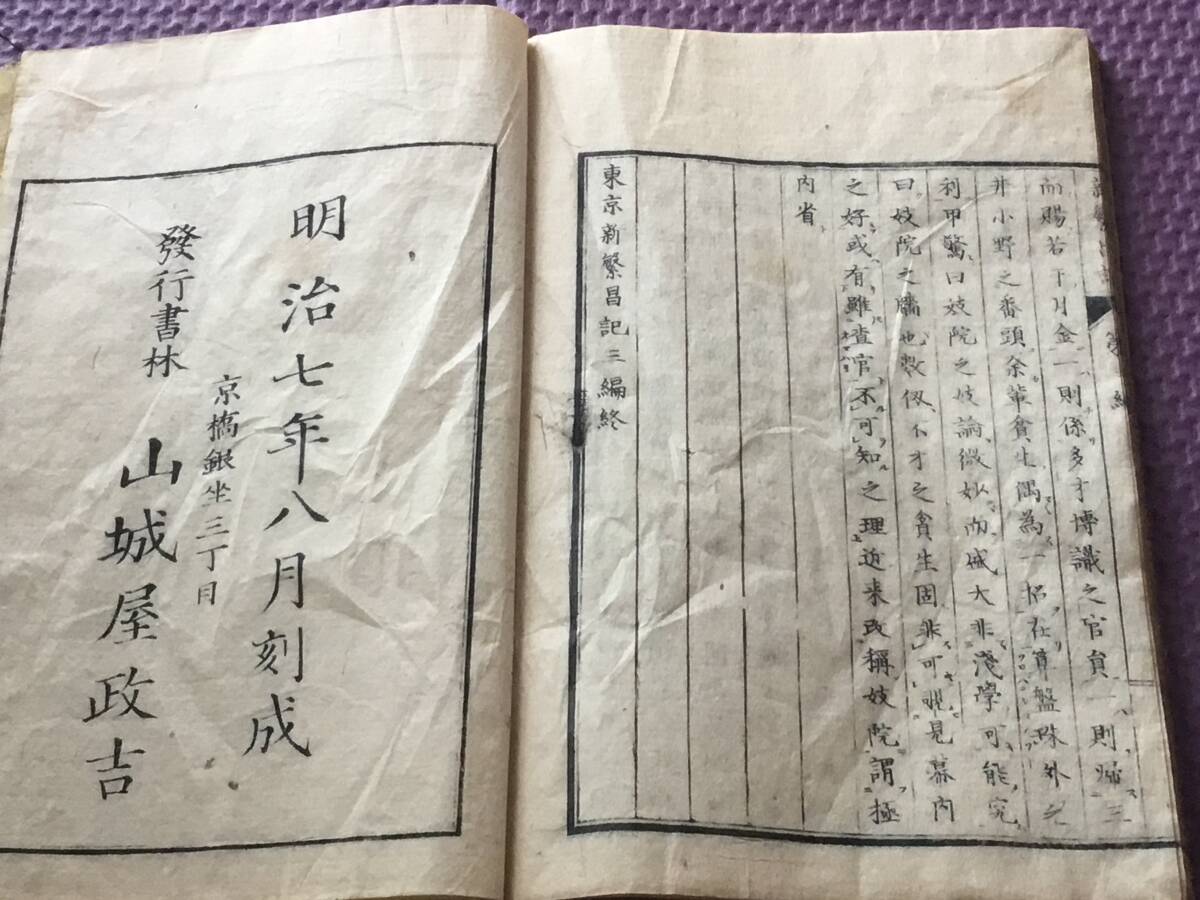 而賜若干月金一則係多才博識之官員一則歸三
井小野之番頭余輩貧生偶為一招在算盤珠外之
利甲驚曰妓院之妓論微妙而盛大非淺學可能究
曰妓院之牗也数仭不才之貧生固非可覗見幕内
之好或有雖査官不可知之理近来改稱妓院謂極
内省
東京新繁昌記三編終
明治七年八月刻成
京橋銀坐三丁目
發行書林 山城屋政吉